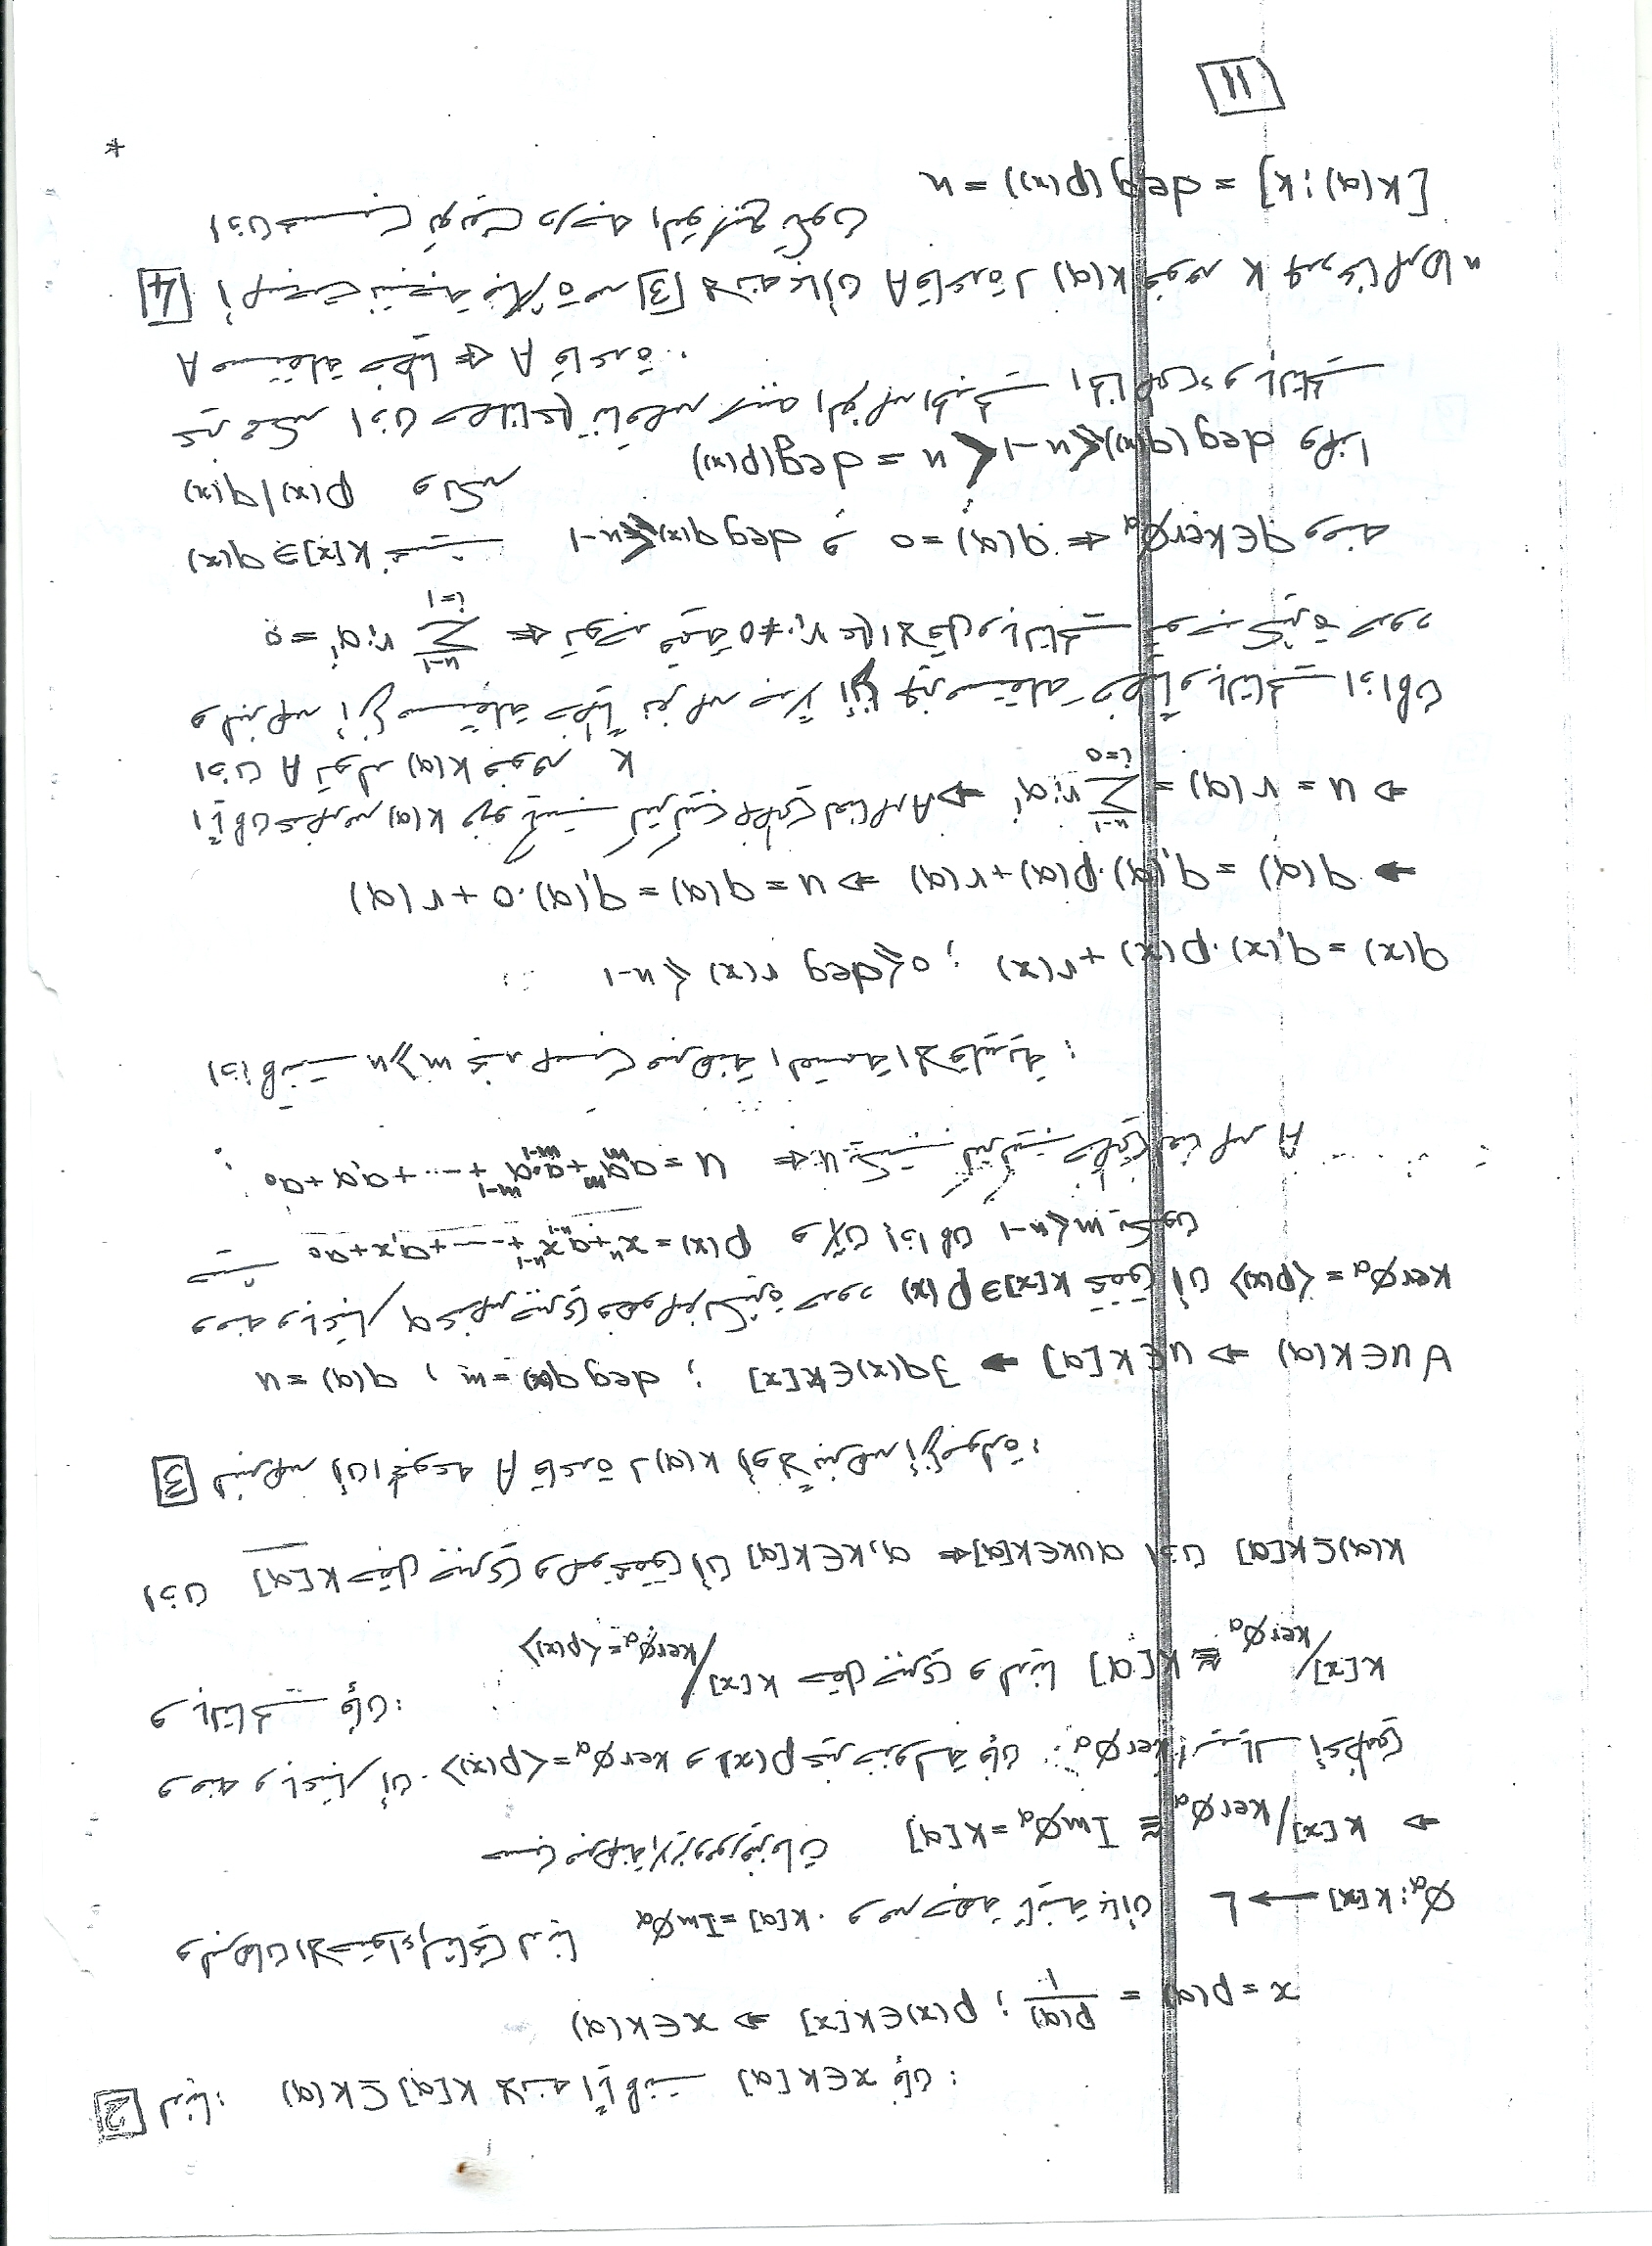 [2] لدينا: k[α] ⊆ k(α) لانه أيًا كانت x∈k[α] فإن :
x = p(α) = p(α)/1 ; p(x)∈k[x] ⇒ x∈k(α)
ولبرهان الاحتواء الثاني لدينا k[α] = Imϕα . ومن جهة ثانية بما أن ϕα : k[x] → L
حسب مبرهنة الايزومورفيزمات ⇒ k[x]/kerϕα ≅ Imϕα = k[α]
ومنه وباعتبار أن kerϕα = <p(x)> و p(x) غير خذولة فإن kerϕα ايديال أعظمي
وبالتالي فإن :
k[x]/kerϕα = <p(x)> حقل جبري ولدينا k[α] ≅ k[x]/kerϕα
اذن k[α] حقل جبري وهو يحقق أن α, k∈k[α] ⇐ α∪k∈k[α] اذن k(α) ⊆ k[α]
[3] لنبرهن أن المجموعه A قاعدة لـ k(α) أولاً نبرهن أنها مولدة :
∀u∈k(α) ⇒ u∈k[α] ⇒ ∃q(x)∈k[x] ; deg q(x) = m , q(α) = u
ومنه وباعتبار α عنصر جبري فهو صفر لكثيرة حدود k[x]∋p(x) تحقق أن kerϕα = <p(x)>
حيث p(x) = xⁿ + aₙ₋₁xⁿ⁻¹ + ... + a₁x + a₀ والآن إذا كان m ≤ n-1 يكون
u = aₘαᵐ + aₘ₋₁αᵐ⁻¹ + ... + a₁α + a₀ ⇐ u يكتب كتركيب خطي لعناصر A
اذا كانت m ≥ n نجد حسب مبرهنة القسمة الاقليدية :
q(x) = q₁(x).p(x) + r(x) ; 0 ≤ deg r(x) ≤ n-1
⇒ q(α) = q₁(α).p(α) + r(α) ⇒ u = q(α) = q₁(α).0 + r(α)
⇒ u = r(α) = Σ_{i=0}^{n-1} rᵢαⁱ ⇒ أيًا كان عنصر من k(α) فهو يكتب كتركيب خطي لعناصر A
اذن A تولد k(α) فوق k
ولنبرهن أنها مستقلة خطياً نفرض جدلاً أنها غير مستقلة خطياً وبالتالي اذا كان
Σ_{i=1}^{n-1} rᵢαⁱ = 0 ⇐ توجد قيمة rᵢ ≠ 0 على الاقل وبالتالي توجد كثيرة حدود
k[x]∋q(x) بحيث deg q(x) ≤ n-1 و q(α) = 0 ⇐ q∈kerϕα ومنه
p(x)|q(x) ولكن deg(q(x)) ≤ n-1 < n = deg(p(x)) وهذا
غير ممكن اذن حصلنا على تناقض سببه الفرض الجدلي الخاطئ وبالتالي
A مستقلة خطيا ⇐ A قاعدة .
[4] أصبحت نتيجة مباشرة من [3] لانه بما أن A قاعدة لـ k(α) فوق k عدد عناصرها n
اذن بحسب تعريف درجه التوسيع تكون
[k(α) : k] = deg(p(x)) = n
*
11